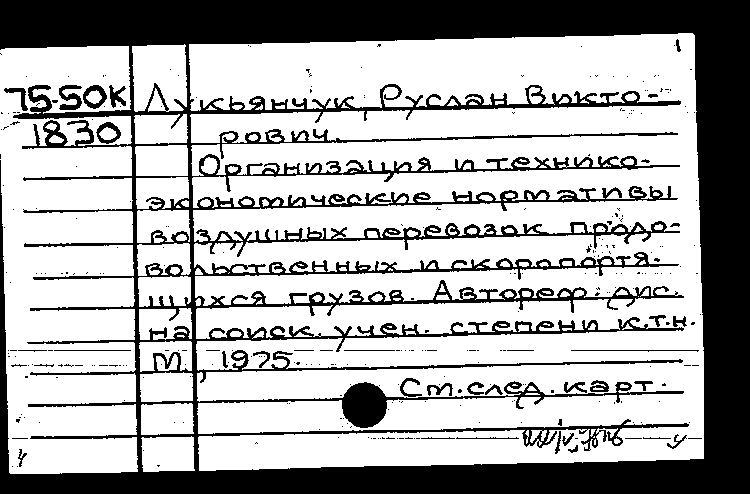 1
75-50К Лукьянчук, Руслан Викто-
1830 рович.
Организация и технико-
экономические нормативы
воздушных перевозок продо-
вольственных и скоропортя-
щихся грузов. Автореф. дис.
на соиск. учен. степени к.т.н.
М., 1975.
См.след.карт.